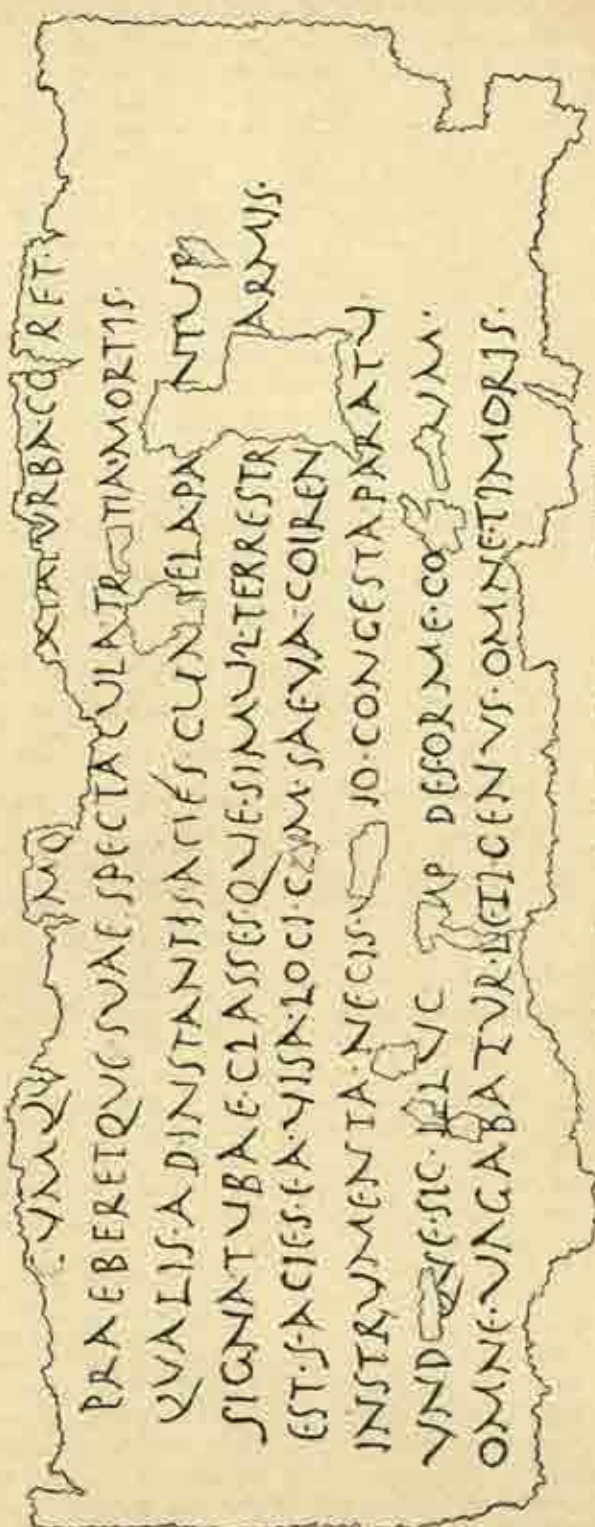 VMQV MO XTATVRBA·CO RET·
PRAEBERETQVE·SVAE·SPECTACVLATR TIA·MORTIS·
QVALIS·ADINSTANTISACIESCVM TELAPA NTVR
SIGNATVBAE·CLASSESQVE·SIMVL·TERRESTR ARMIS·
EST·FACIES·EA·VISA·LOCI·CVM·SAEVA·COIREN
INSTRVMENTA·NECIS·V IO·CONGESTAPARATV
VND QVE·SIC·ILLVC AP DEFORME·CO VM·
OMNE·VAGABATVR·LETIGENVS·OMNETIMORIS·